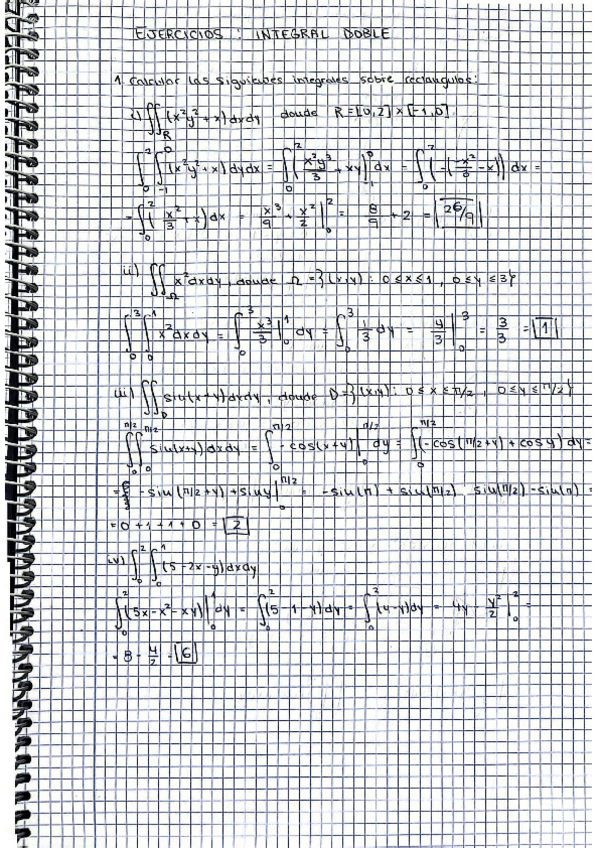 EJERCICIOS : INTEGRAL DOBLE
1. Calcular las siguientes integrales sobre rectangulos:
i) ∬_R (x²y² + x) dxdy donde R = [0,2] × [-1,0]
∫₀² ∫₋₁⁰ (x²y² + x) dydx = ∫₀² (x²y³/3 + xy)|₋₁⁰ dx = ∫₀² (-(-x²/3 - x)) dx =
= ∫₀² (x²/3 + x) dx = x³/9 + x²/2 |₀² = 8/9 + 2 = 26/9
ii) ∬_Ω x² dxdy, donde Ω = {(x,y) : 0 ≤ x ≤ 1, 0 ≤ y ≤ 3}
∫₀³ ∫₀¹ x² dxdy = ∫₀³ x³/3 |₀¹ dy = ∫₀³ 1/3 dy = y/3 |₀³ = 3/3 = 1
iii) ∬_D sin(x+y) dxdy, donde D = {(x,y) : 0 ≤ x ≤ π/2, 0 ≤ y ≤ π/2}
∫₀^π/2 ∫₀^π/2 sin(x+y) dxdy = ∫₀^π/2 -cos(x+y)|₀^π/2 dy = ∫₀^π/2 (-cos(π/2+y) + cos y) dy =
= -sin(π/2+y) + sin y |₀^π/2 = -sin(π) + sin(π/2) sin(π/2) - sin(π) =
= 0 + 1 + 1 + 0 = 2
iv) ∫₀² ∫₀¹ (5 - 2x - y) dxdy
∫₀² (5x - x² - xy)|₀¹ dy = ∫₀² (5 - 1 - y) dy = ∫₀² (4 - y) dy = 4y - y²/2 |₀² =
= 8 - 4/2 = 6